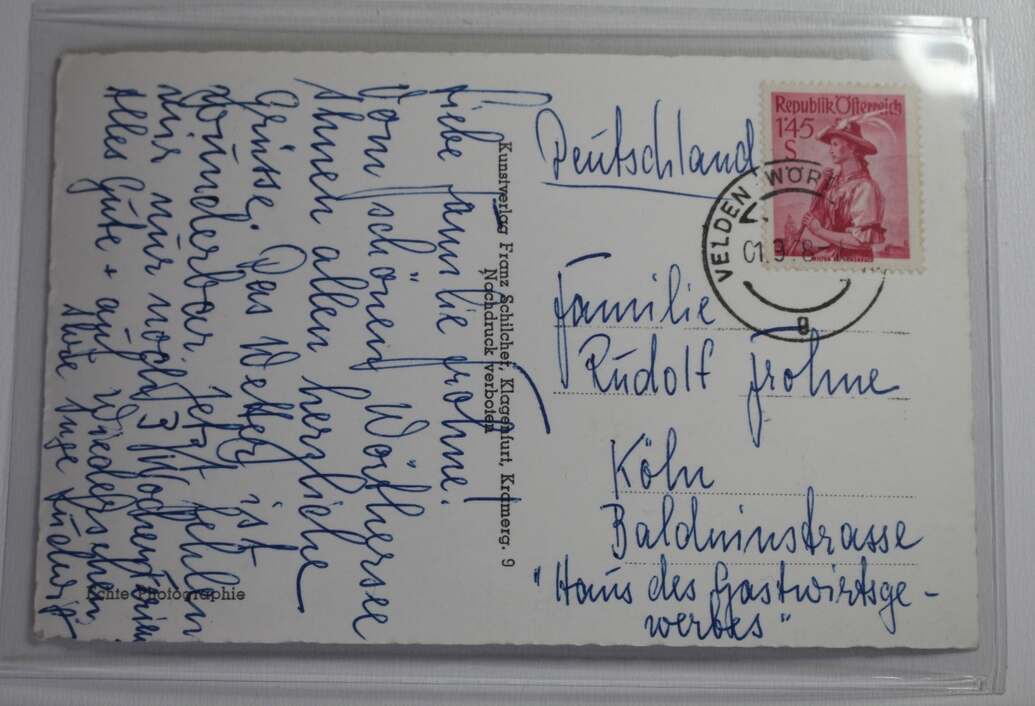 Liebe Familie Frohne!
Vom schönen Wörthersee
Ihnen allen herzliche
Grüsse. Das Wetter ist
wunderbar. Jetzt fehlen
mir nur noch 3 Wochen Ferien
Alles Gute + auf Wiedersehen
Ihre Inge
Echte Photographie
Kunstverlag Franz Schilcher, Klagenfurt, Kramerg. 9
Nachdruck verboten
Deutschland
Republik Österreich
1'45
S
VELDEN WÖRT
01.9 8-
g
Familie
Rudolf Frohne
Köln
Balduinstrasse
"Haus des Gastwirtsge-
werbes"